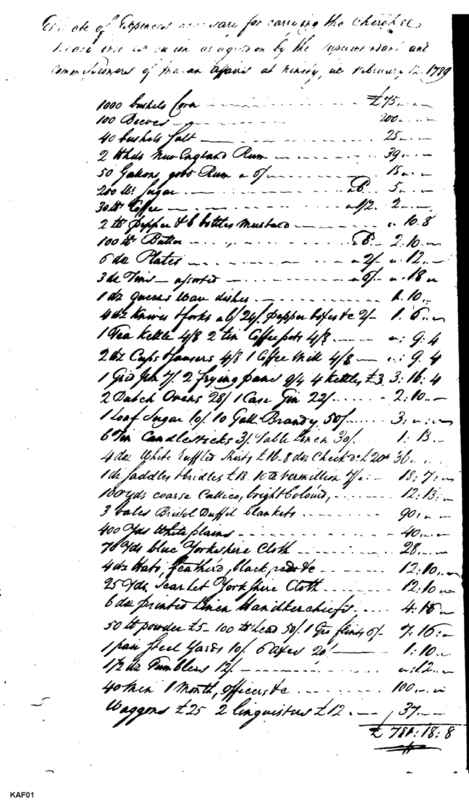 Estimate of Expences necessary for carrying the Cherokee
Treaty into as agreed on by the Superintendant and
Commissioners of Indian affairs at February 12. 1789
1000 bushels Corn £75
100 Beeves 200
40 bushels Salt 25
2 Hhds New England Rum 39
50 Gallons good Rum a 6/ 15
200 lb. Sugar 5
30 lb Coffee a 1/2 2
2 lb Pepper & 6 bottles Mustard 10.8
100 lb Butter 2.10
6 doz Plates a 2/ 12
3 doz Tins assorted a 6/ 18
1 doz queens ware dishes 1.10
4 doz Knives & forks a 24/ Pepper boxes &c 2/ 1.6
1 Tea Kettle 4/8 2 tin Coffee pots 4/8 9.4
2 doz Cups & Saucers 4/8 1 Coffee Mill 4/8 9.4
1 7/ 2 frying pans 9/4 4 kettles £3 3.16.4
2 Dutch Ovens 28/ 1 Case Gin 22/ 2.10
1 Loaf Sugar 10/ 10 Gall. Brandy 50/ 3
6 Tin Candlesticks 3/ Table Linen 30/ 1.13
4 doz White ruffled Shirts £16. 8 doz Check do £20 36
1 doz Saddles & bridles £18. 10 lb vermillion 7/ 18.7
100 yds coarse Callico, bright Colours, 12.13
3 bales Bristol Duffil blankets 90
400 Yds White plains 40
70 Yds blue Yorkshire Cloth 28
4 doz Hats, feather'd, black, &c 12.10
25 Yds Scarlet Yorkshire Cloth 12.10
6 doz printed Linen Handkerchiefs 4.16
50 lb powder £5 100 lb lead 50/ 1 Gro flints 6/ 7.16
1 pair Steel Yards 10/ 6 axes 20/ 1.10
1 1/2 doz Tumblers 12/ 12
40 Men 1 Month, officers &c 100
Waggons £25 2 linguisters £12 37
£ 781:18:8
KAF01